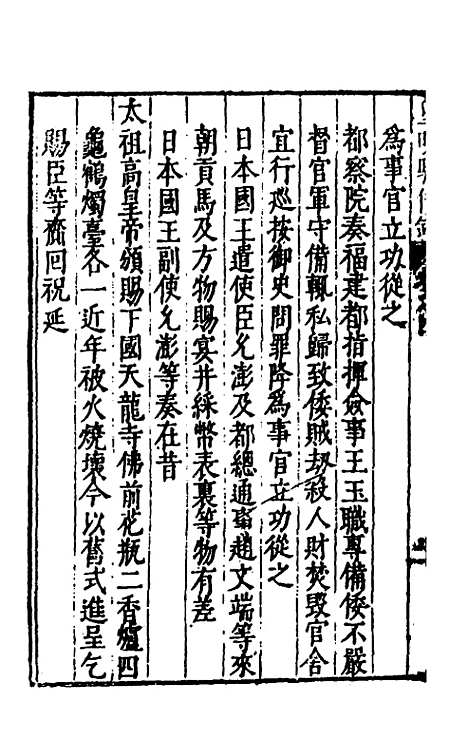 爲事官立功從之
都察院奏福建都指揮僉事王玉職專備倭不嚴
督官軍守備輒私歸致倭賊刼殺人財焚毀官舍
宜行巡按御史問罪降爲事官立功從之
日本國王遣使臣允澎及都總通事趙文端等來
朝貢馬及方物賜宴并綵幣表裏等物有差
日本國王副使允澎等奏在昔
太祖高皇帝頒賜下國天龍寺佛前花瓶二香爐四
龜鶴燭臺各一近年被火燒壞今以舊式進呈乞
賜臣等齎回祝延